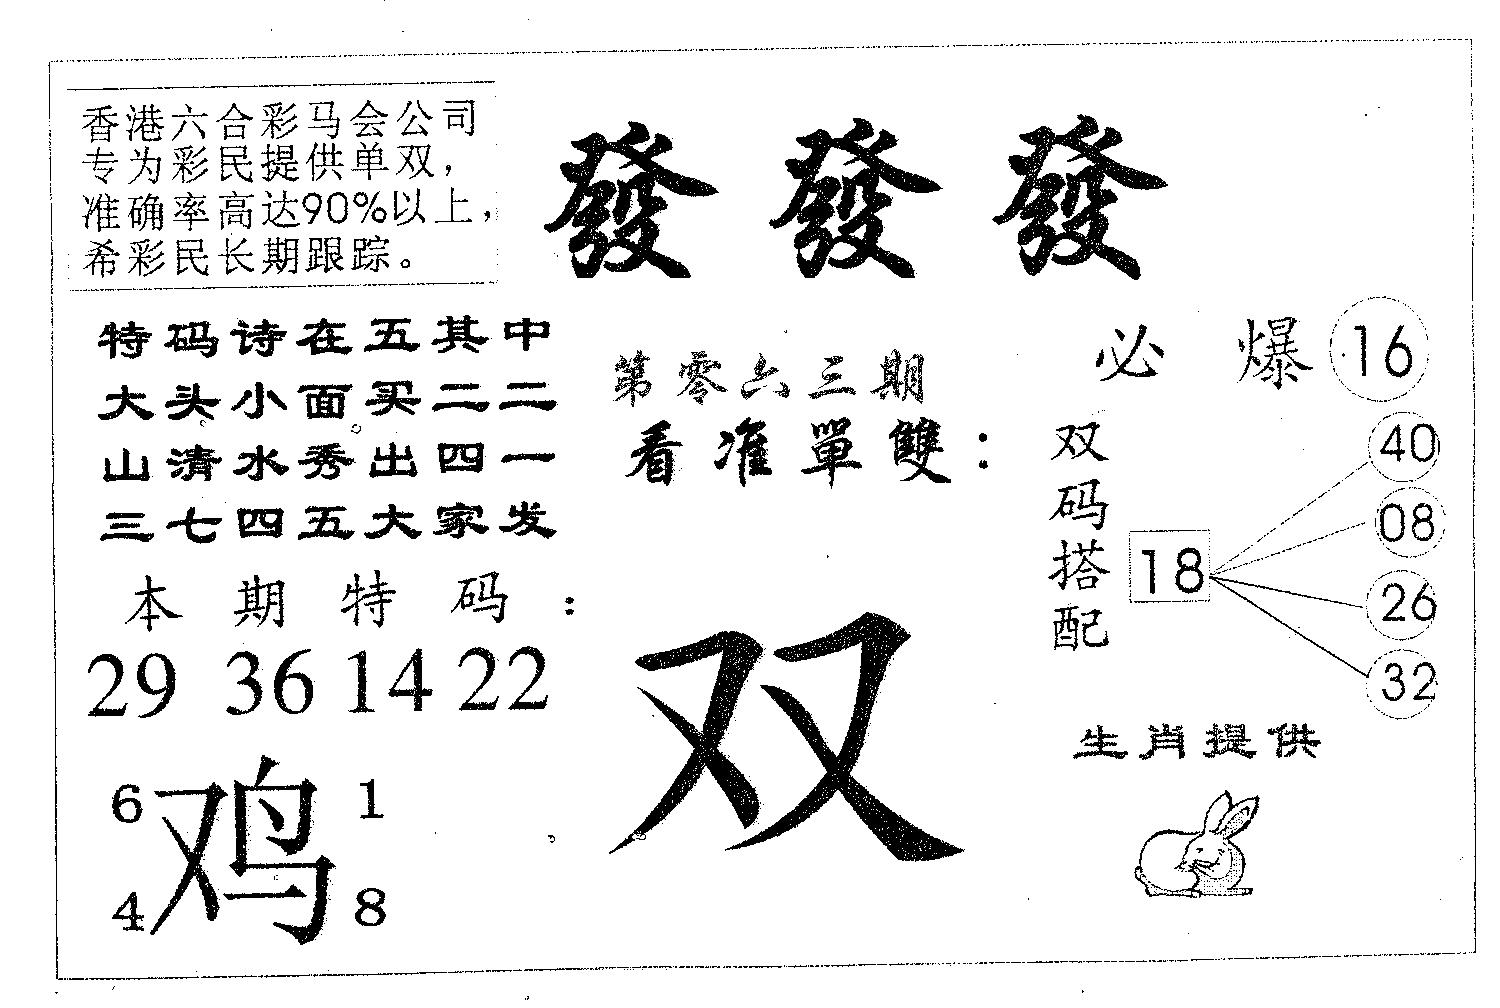 香港六合彩马会公司
专为彩民提供单双，
准确率高达90%以上，
希彩民长期跟踪。
發 發 發
特码诗在五其中
大头小面买二二
山清水秀出四一
三七四五大家发
本期特码：
29 36 14 22
6 1
鸡
4 8
第零六三期
看准單雙：
双
必爆 16
双码搭配
18
40
08
26
32
生肖提供